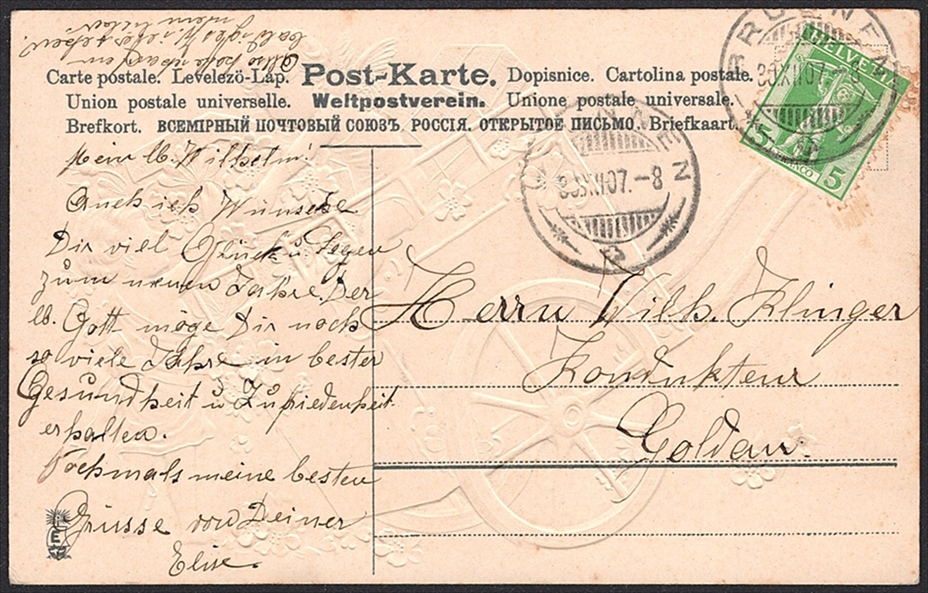 Also hoffentlich
bald giebts Wiedersehen!
mein lieber
Carte postale. Levelezö-Láp. Post-Karte. Dopisnice. Cartolina postale.
Union postale universelle. Weltpostverein. Unione postale universale.
Brefkort. ВСЕМІРНЫЙ ПОЧТОВЫЙ СОЮЗЪ. РОССІЯ. ОТКРЫТОЕ ПИСЬМО. Briefkaart.
BRUNNEN
30.XII.07.-8
HELVETIA
5 5
30.XII.07.-8
Mein lb. Wilhelm!
Auch ich Wünsche
Dir viel Glück u. Segen
zum neuen Jahre. Der
lb. Gott möge Dir noch
so viele Jahre in bester
Gesundheit u Zufriedenheit
erhalten.
Nochmals meine besten
Grüsse von Deiner
Elise.
Herrn Wilh. Klinger
Kondukteur
Goldau.